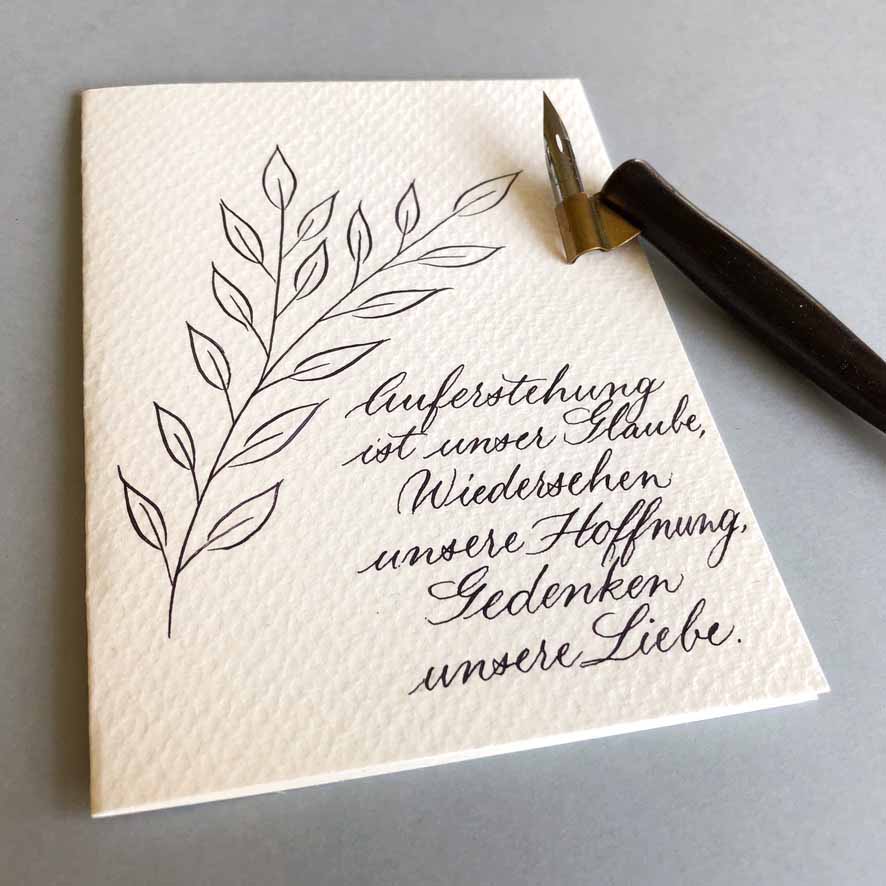 Auferstehung
ist unser Glaube,
Wiedersehen
unsere Hoffnung,
Gedenken
unsere Liebe.